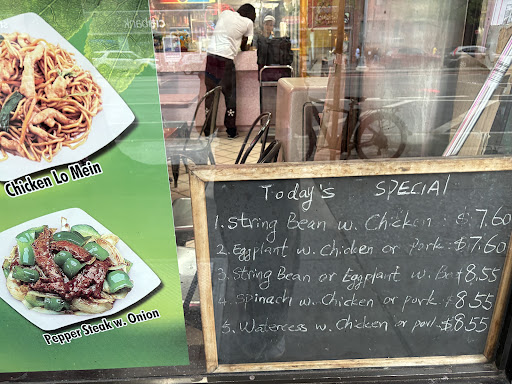 Chicken Lo Mein
Pepper Steak w. Onion
Today's SPECIAL
1. String Bean w. Chicken : $7.60
2. Eggplant w. Chicken or Pork : $7.60
3. String Bean or Eggplant w. $8.55
4. Spinach w. Chicken or pork $8.55
5. Watercess w. Chicken or pork $8.55